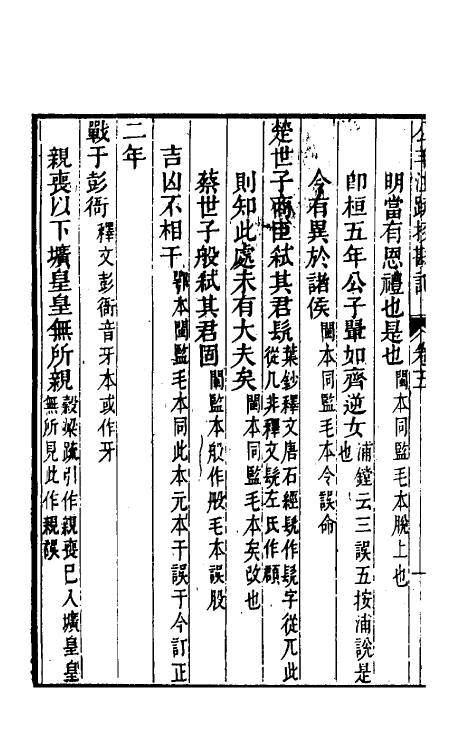 公羊注疏挍勘記 卷五
明當有恩禮也是也 閩本同監毛本脫上也
即桓五年公子翬如齊逆女也 浦鏜云三誤五按浦說是
今有異於諸侯 閩本同監毛本今誤命
楚世子商臣弒其君髡 葉鈔釋文唐石經髡作髠字從兀此從几非釋文髡左氏作頵
則知此處未有大夫矣 閩本同監毛本矣改也
蔡世子般弒其君固 閩監本般作般毛本誤股
吉凶不相干 鄂本閩監毛本同此本元本干誤于今訂正
二年
戰于彭衙 釋文彭衙音牙本或作牙
親喪以下壙皇皇無所親 穀梁疏引作親喪已入壙皇皇無所見此作親誤